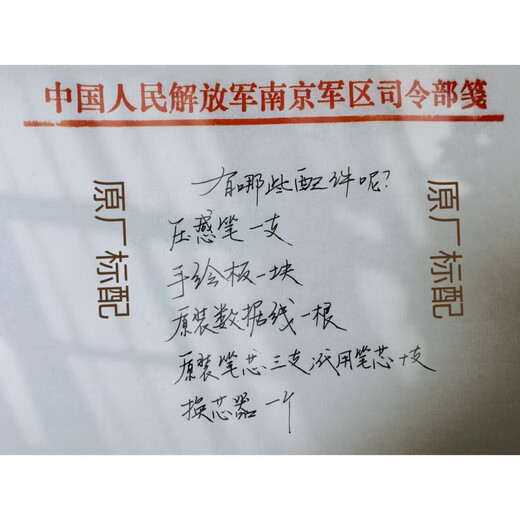 中国人民解放军南京军区司令部笺
有哪些配件呢?
压感笔一支
手绘板一块
原装数据线一根
原装笔芯三支,代用笔芯十支
换芯器一个
原厂标配
原厂标配